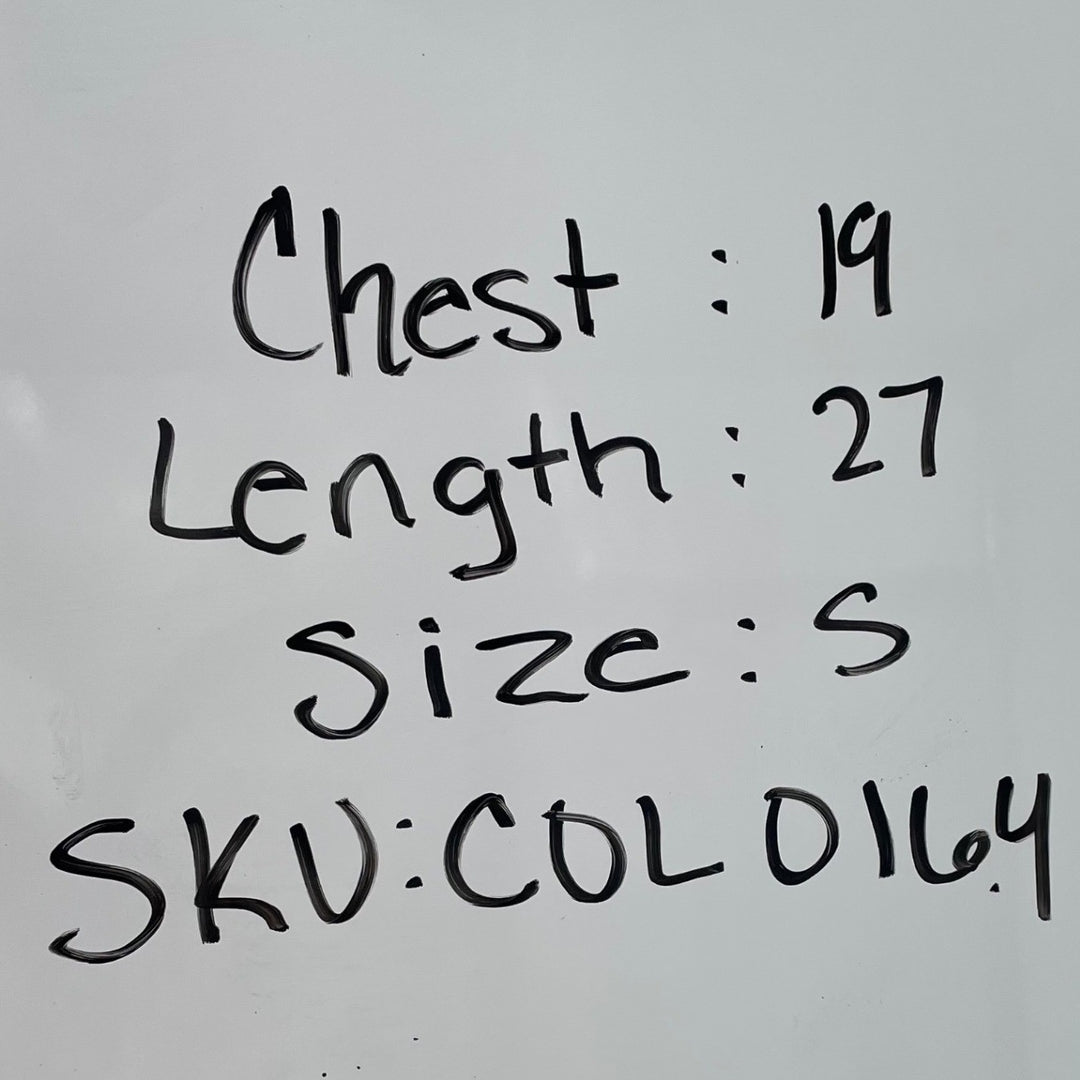 Chest : 19
Length : 27
Size : S
SKU: COL 016.4